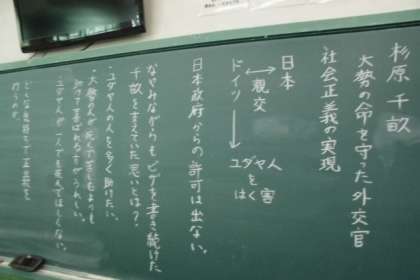 杉原千畝
大勢の命を守った外交官
社会正義の実現
日本
親交
ドイツ
ユダヤ人
を
はく害
日本政府からの許可は出ない。
なやみながらもビザを書き続けた
千畝を支えていた思いとは?
・ユダヤ人の人を多く助けたい。
・大勢の人が死んで苦しむよりも
助けて喜ばれる方がうれしい。
・ユダヤ人が一人でも死んでほしくない。
どんな気持ちで正義を
行うのか。